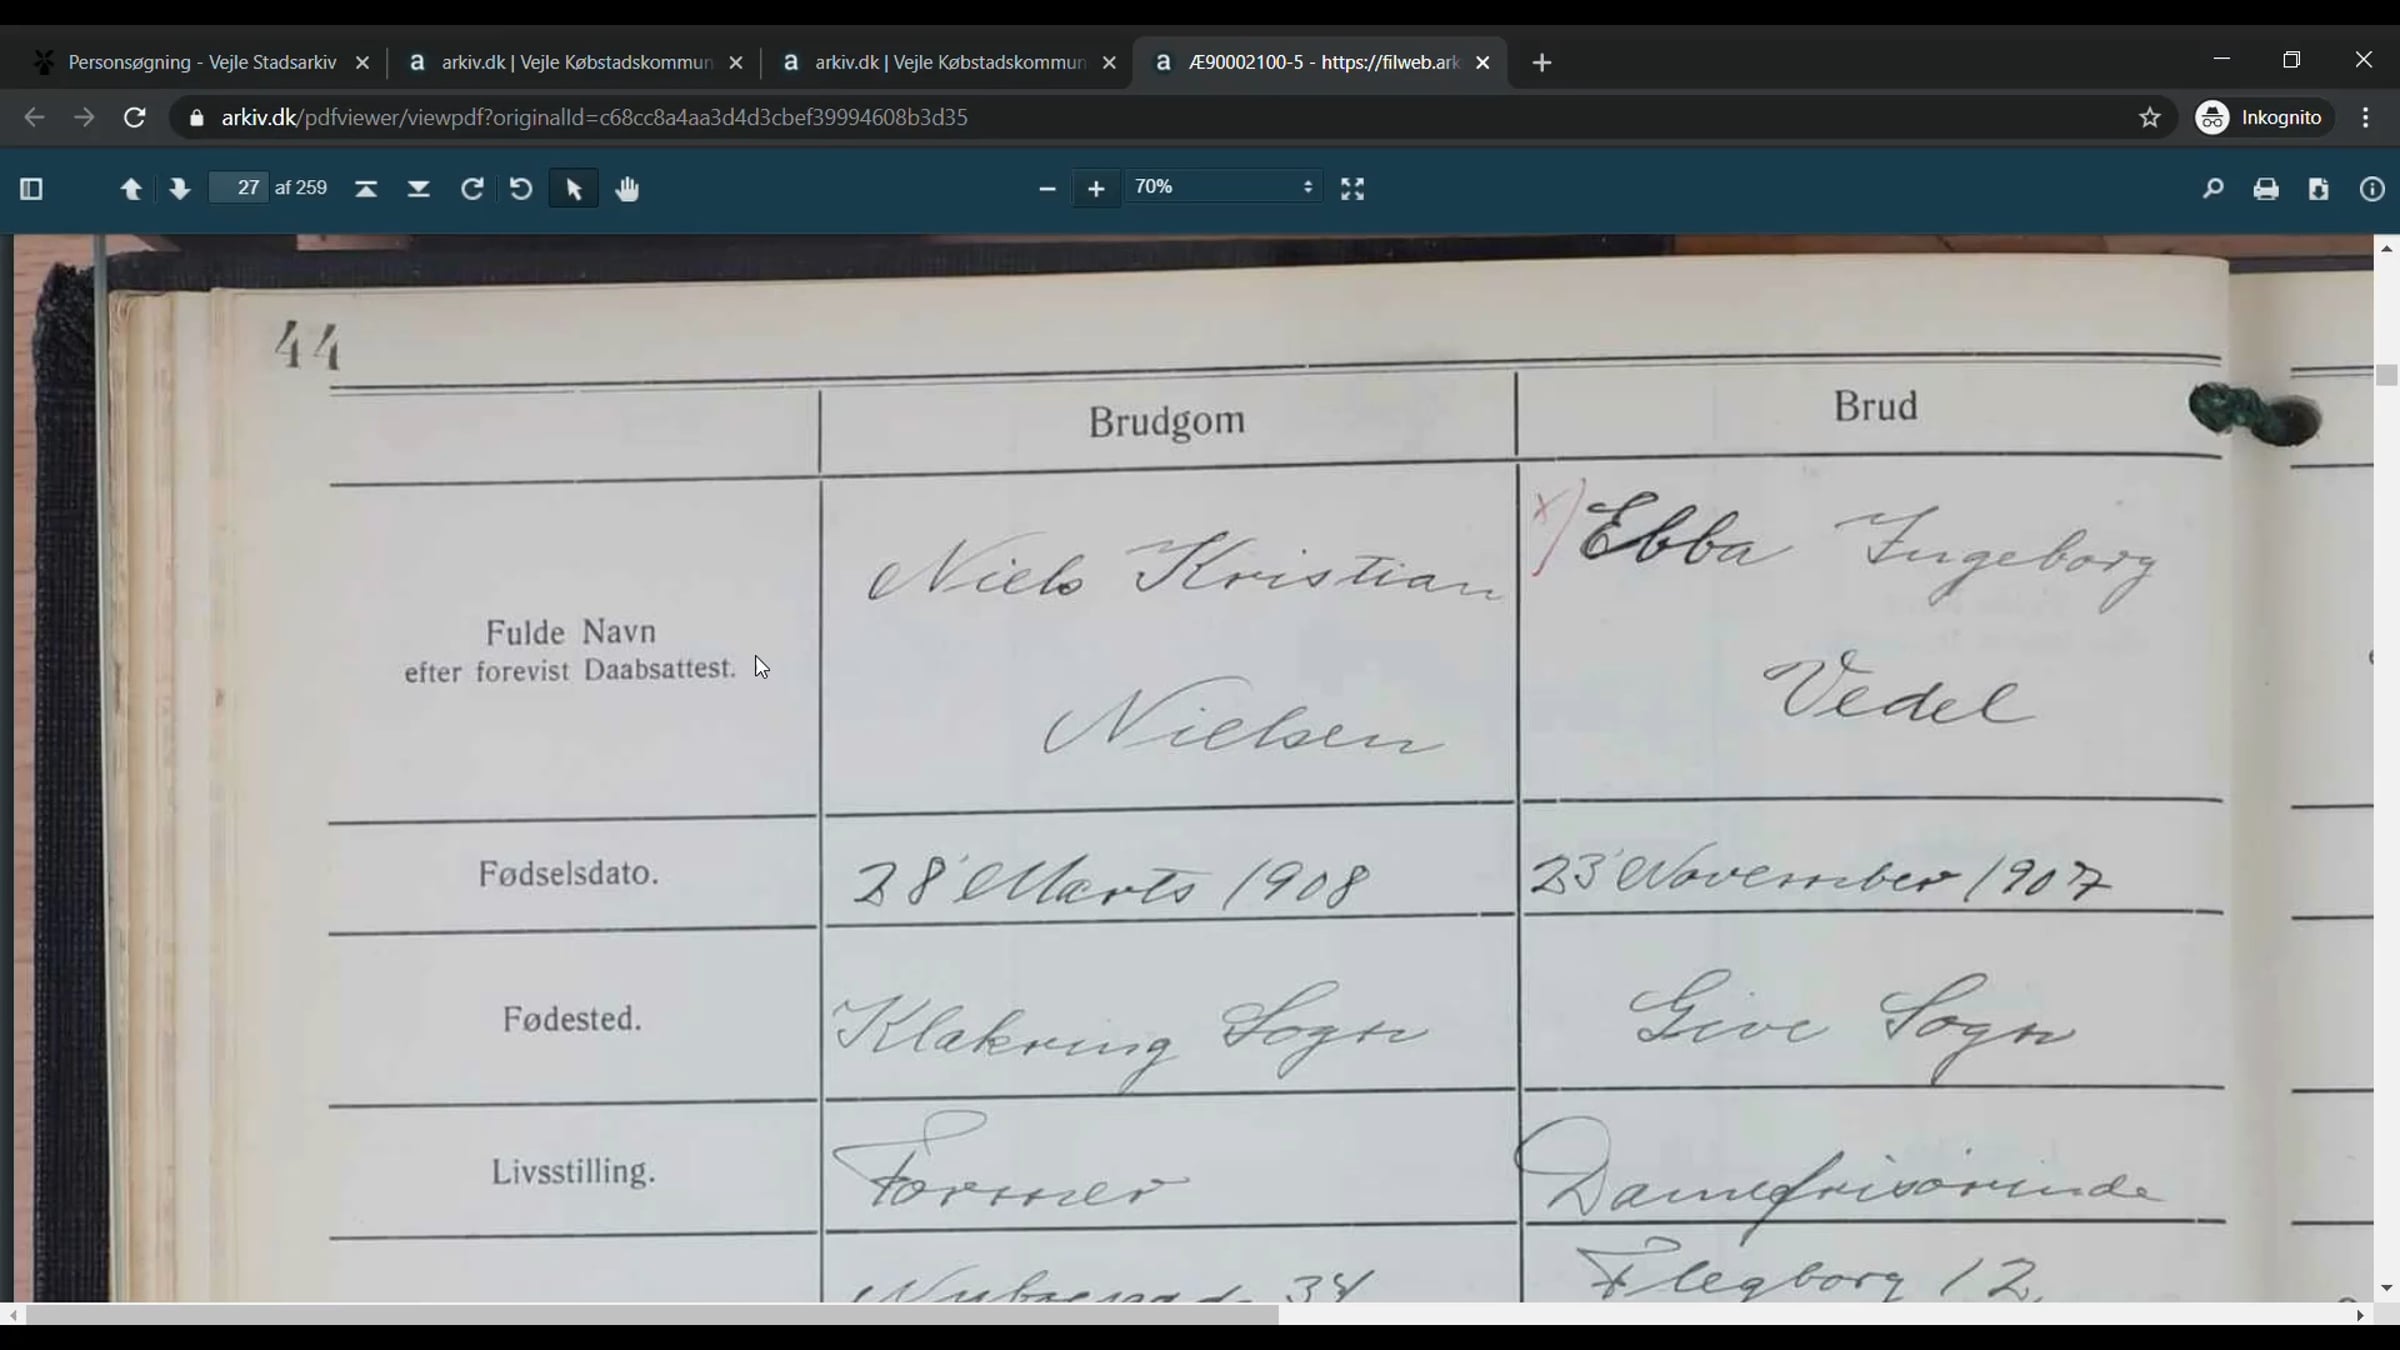 Personsøgning - Vejle Stadsarkiv
arkiv.dk | Vejle Købstadskommun
arkiv.dk | Vejle Købstadskommun
Æ90002100-5 - https://filweb.ark
arkiv.dk/pdfviewer/viewpdf?originalId=c68cc8a4aa3d4d3cbef39994608b3d35
Inkognito
27 af 259
70%
44
Brudgom Brud
Niels Kristian x) Ebba Ingeborg
Fulde Navn
efter forevist Daabsattest.
Nielsen Vedel
Fødselsdato. 28' Marts 1908 23' November 1907
Fødested. Klakring Sogn Give Sogn
Livsstilling. Former Damefrisørinde
34 Flegborg 12